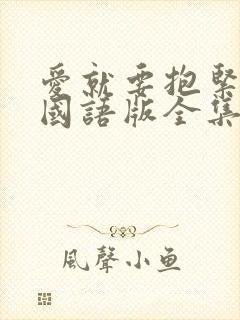 愛就要抱緊
國語版全集
風聲小鱼